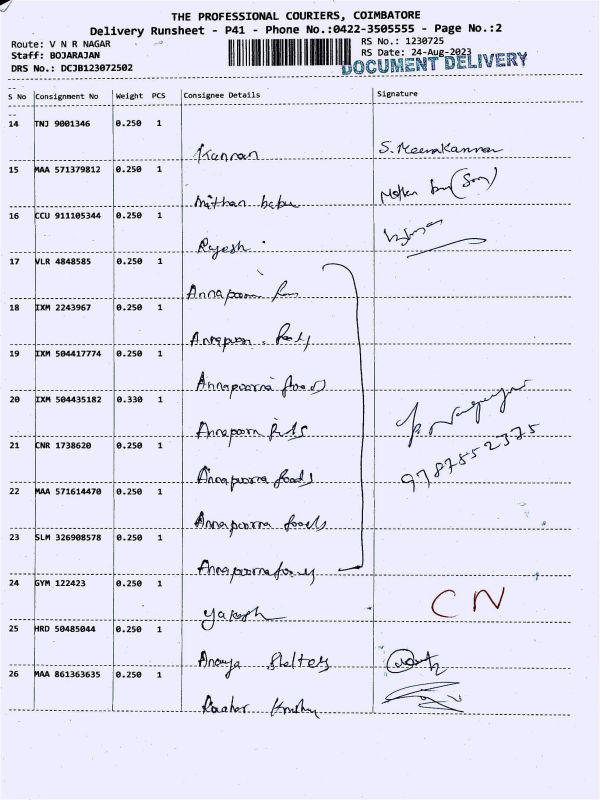 THE PROFESSIONAL COURIERS, COIMBATORE
Delivery Runsheet - P41 - Phone No.:0422-3505555 - Page No.:2
Route: V N R NAGAR
RS No.: 1230725
Staff: BOJARAJAN
RS Date: 24-Aug-2023
DRS No.: DCJB123072502
DOCUMENT DELIVERY
S No Consignment No Weight PCS Consignee Details Signature
14 TNJ 9001346 0.250 1
Kannan S. Meenakannan
15 MAA 571379812 0.250 1
Mithan babu (Son)
16 CCU 911105344 0.250 1
Rajesh
17 VLR 4848585 0.250 1
Annapoorna
18 IXM 2243967 0.250 1
19 IXM 504417774 0.250 1
Annapoorna foods
20 IXM 504435182 0.330 1
21 CNR 1738620 0.250 1
9787552375
Annapoorna foods
22 MAA 571614470 0.250 1
Annapoorna foods
23 SLM 326908578 0.250 1
Annapoorna foods
24 GYM 122423 0.250 1
CN
25 HRD 50485044 0.250 1
Ananya Shelters
26 MAA 861363635 0.250 1